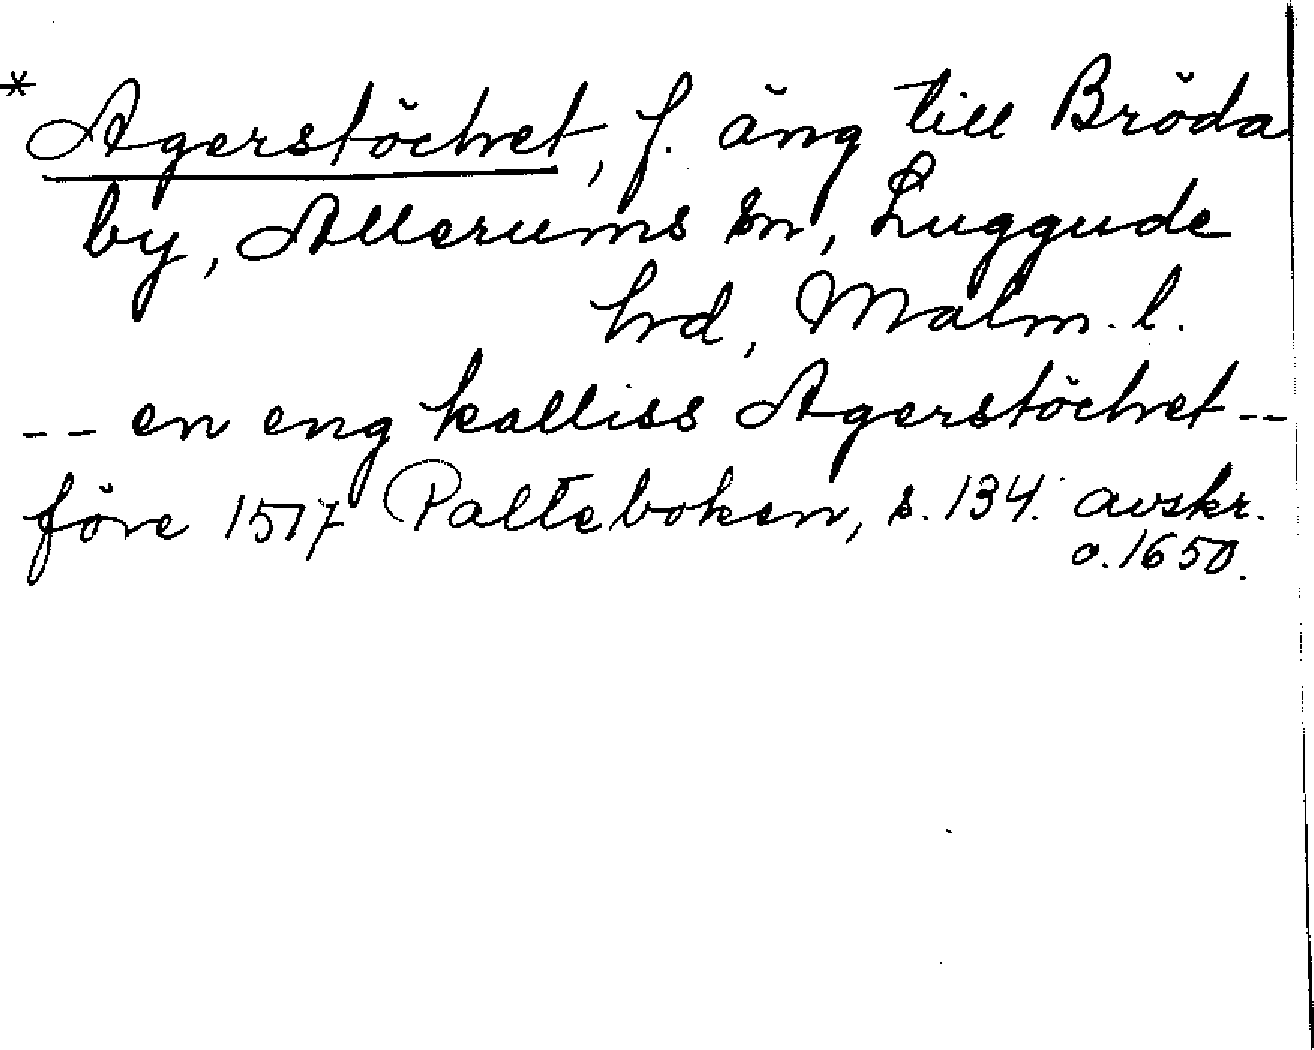 * Agerstöchet, f. äng till Bröda
by, Allerums sn, Luggude
hrd, Malm. l.
-- en eng kalliss Agerstöchet --
före 1517 Palteboken, s. 134. avskr.
o. 1650.